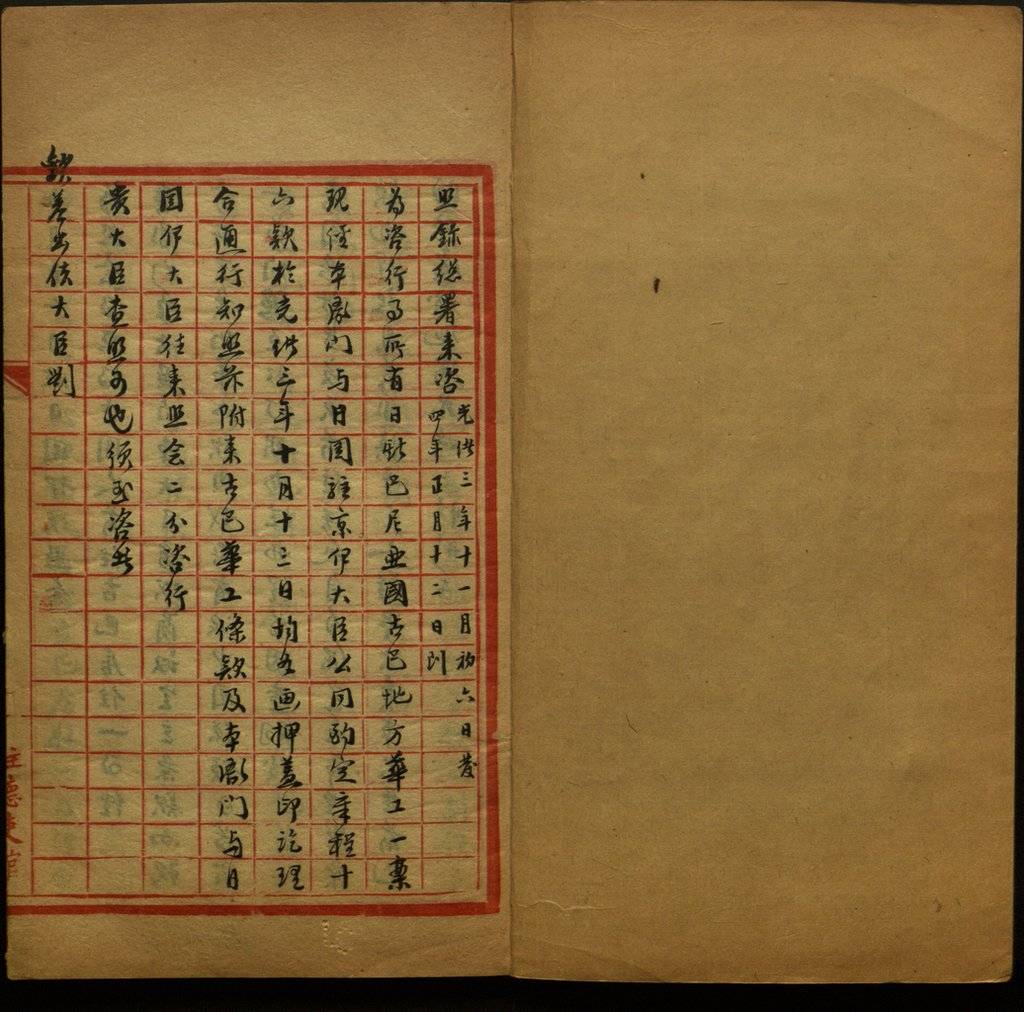 照錄總署来咨光緒三年十一月初六日發
四年正月十二日到
為咨行事所有日斯巴尼亜國古巴地方華工一案
現經本衙門与日国駐京伊大臣公同酌定章程十
六欵於光緒三年十月十三日均各画押蓋印訖理
合通行知照并附来古巴華工條欵及本衙門与日
国伊大臣往来照会二分咨行
貴大臣查照可也須至咨者
欽差出使大臣劉